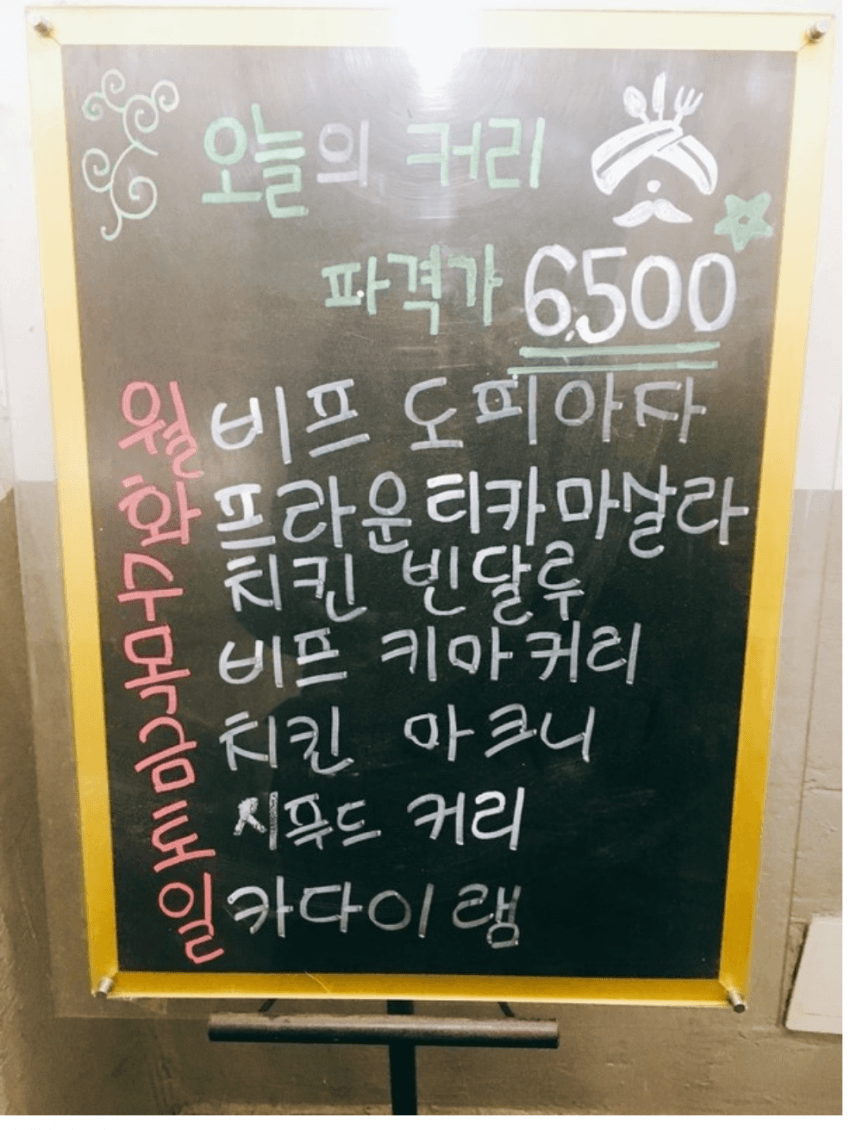 오늘의 커리
파격가 6,500
월 비프 도피아자
화 프라운 티카 마살라
수 치킨 빈달루
목 비프 키마 커리
금 치킨 마크니
토 시푸드 커리
일 카다이 램